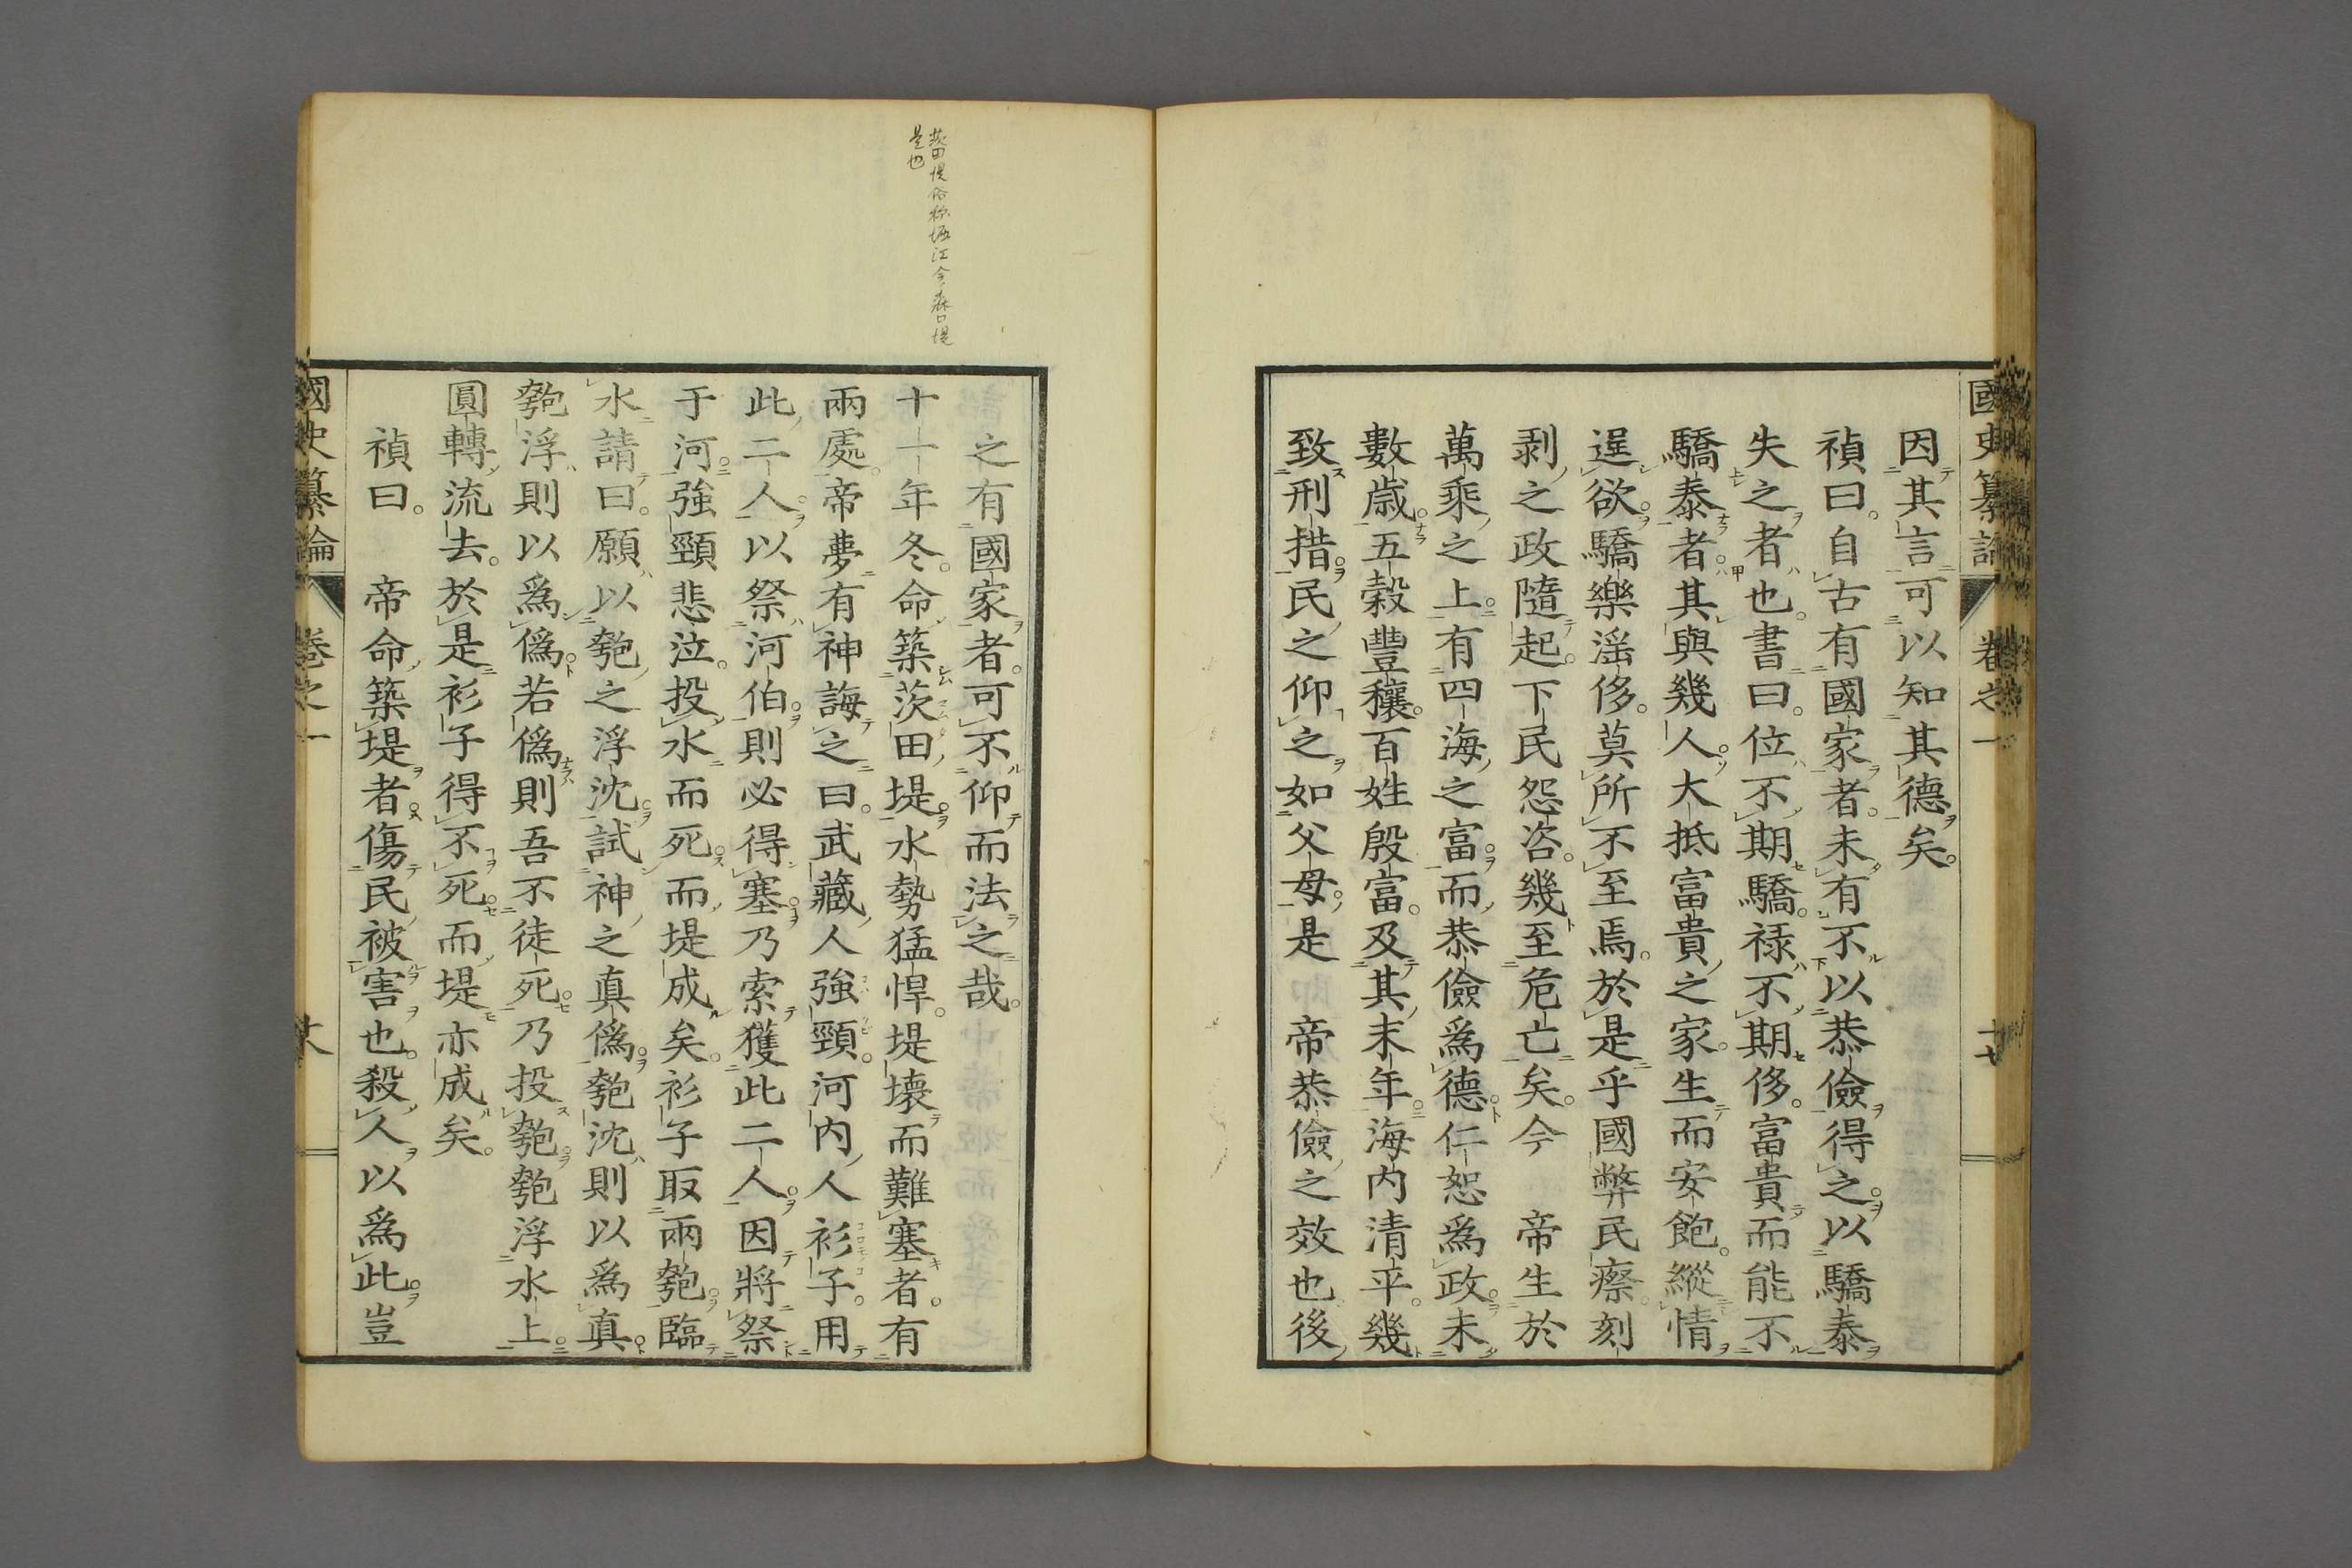 國史纂論 卷之一 十七
因其言可以知其德矣。
禎曰。自古有國家者。未有不以恭儉得之。以驕泰
失之者也。書曰。位不期驕。祿不期侈。富貴而能不
驕泰者。其與幾人。大抵富貴之家。生而安飽。縱情
逞欲。驕樂滛侈。莫所不至焉。於是乎國弊民瘵。刻
剥之政隨起。下民怨咨。幾至危亡矣。今 帝生於
萬乘之上。有四海之富。而恭儉爲德。仁恕爲政。未
數歲。五穀豐穰。百姓殷富。及其末年。海内清平。幾
致刑措。民之仰之如父母。是 帝恭儉之效也。後
之有國家者。可不仰而法之哉。
十一年冬。命築茨田堤。水勢猛悍。堤壊而難塞者。有
兩處。帝夢有神誨之曰。武藏人強頸。河内人衫子。用
此二人。以祭河伯。則必得塞。乃索獲此二人。因將祭
于河。強頸悲泣。投水而死。而堤成矣。衫子取兩匏。臨
水請曰。願以匏之浮沈。試神之真僞。匏沈則以爲真。
匏浮則以爲僞。若僞則吾不徒死。乃投匏。匏浮水上。
圓轉流去。於是衫子得不死。而堤亦成矣。
禎曰。 帝命築堤者。傷民被害也。殺人以爲此。豈
國史纂論 卷之一 十八
茨田堤俗称堀江今森口堤
是也